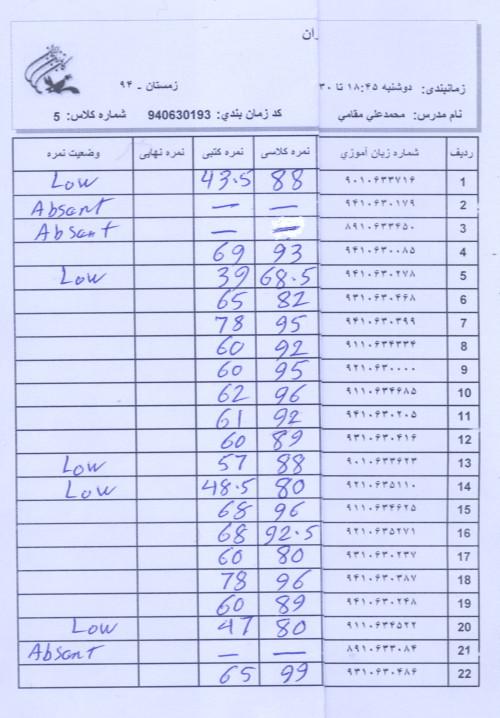 ان
زمانبندی: دوشنبه ۱۸:۴۵ تا ۳۰ زمستان ـ ۹۴
نام مدرس: محمدعلي مقامي کد زمان بندي: 940630193 شماره کلاس: 5
ردیف شماره زبان آموزي نمره کلاسی نمره کتبی نمره نهایی وضعیت نمره
1 ۹۰۱۰۶۳۳۷۱۶ 88 43.5 Low
2 ۹۴۱۰۶۳۰۱۷۹ — — Absent
3 ۸۹۱۰۶۳۳۴۵۰ — — Absent
4 ۹۴۱۰۶۳۰۰۸۵ 93 69
5 ۹۴۱۰۶۳۰۲۷۸ 68.5 39 Low
6 ۹۳۱۰۶۳۰۴۶۸ 82 65
7 ۹۴۱۰۶۳۰۳۹۹ 95 78
8 ۹۱۱۰۶۳۴۳۳۴ 92 60
9 ۹۲۱۰۶۳۰۰۰۰ 95 60
10 ۹۱۱۰۶۳۴۶۸۵ 96 62
11 ۹۴۱۰۶۳۰۲۰۵ 92 61
12 ۹۳۱۰۶۳۰۴۱۶ 89 60
13 ۹۰۱۰۶۳۳۶۲۳ 88 57 Low
14 ۹۲۱۰۶۳۵۱۱۰ 80 48.5 Low
15 ۹۱۱۰۶۳۴۶۲۵ 96 68
16 ۹۲۱۰۶۳۵۲۷۱ 92.5 68
17 ۹۳۱۰۶۳۰۲۳۷ 80 60
18 ۹۴۱۰۶۳۰۳۸۷ 96 78
19 ۹۴۱۰۶۳۰۲۴۸ 89 60
20 ۹۱۱۰۶۳۴۵۲۲ 80 47 Low
21 ۸۹۱۰۶۳۳۰۸۴ — — Absent
22 ۹۳۱۰۶۳۰۴۸۶ 99 65